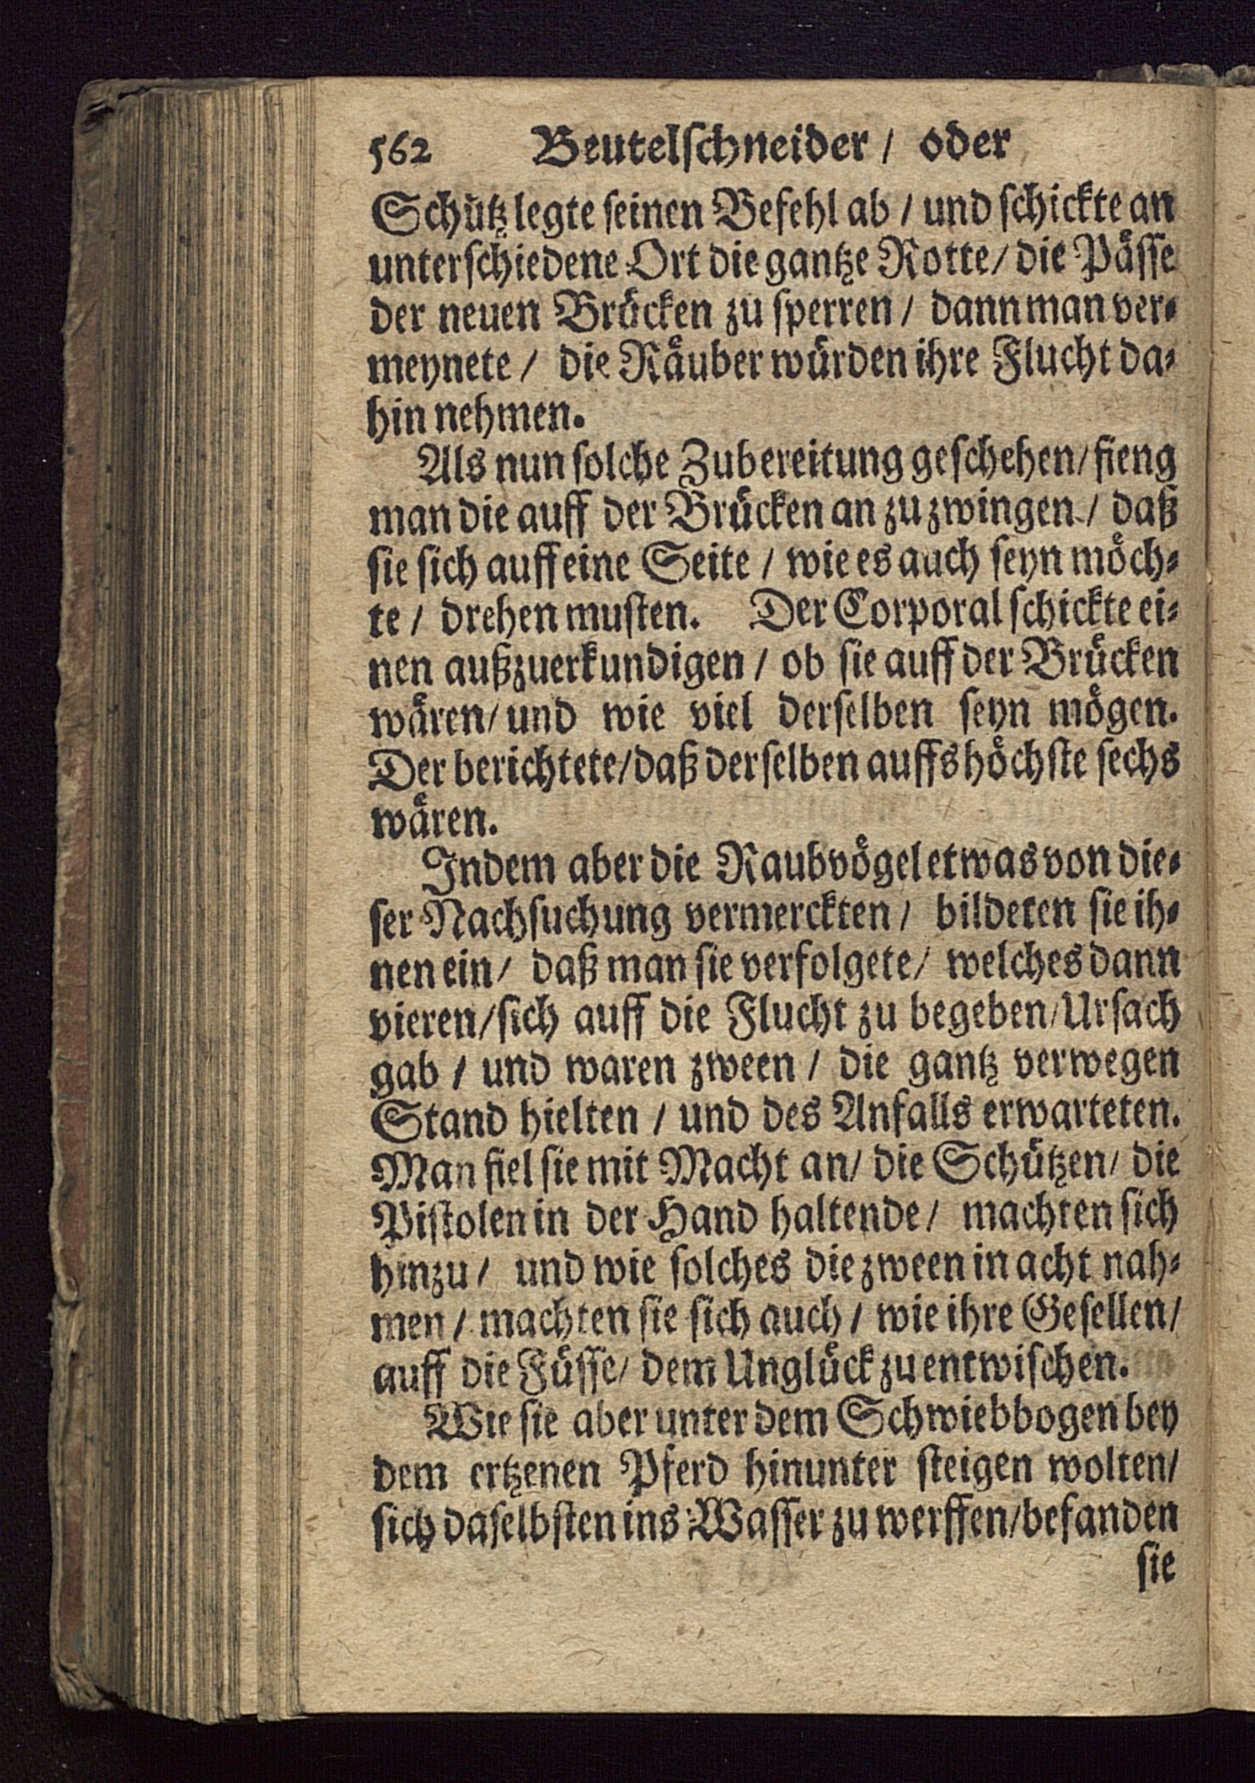 562 Beutelschneider / oder
Schütz legte seinen Befehl ab / und schickte an
unterschiedene Ort die gantze Rotte / die Pässe
der neuen Brücken zu sperren / dann man ver-
meynete / die Räuber würden ihre Flucht da-
hin nehmen.
Als nun solche Zubereitung geschehen / fieng
man die auff der Brücken an zu zwingen / daß
sie sich auff eine Seite / wie es auch seyn möch-
te / drehen musten. Der Corporal schickte ei-
nen außzuerkundigen / ob sie auff der Brücken
wären / und wie viel derselben seyn mögen.
Der berichtete / daß derselben auffs höchste sechs
wären.
Indem aber die Raubvögel etwas von die-
ser Nachsuchung vermerckten / bildeten sie ih-
nen ein / daß man sie verfolgete / welches dann
vieren / sich auff die Flucht zu begeben / Ursach
gab / und waren zween / die gantz verwegen
Stand hielten / und des Anfalls erwarteten.
Man fiel sie mit Macht an / die Schützen / die
Pistolen in der Hand haltende / machten sich
hinzu / und wie solches die zween in acht nah-
men / machten sie sich auch / wie ihre Gesellen /
auff die Füsse / dem Unglück zu entwischen.
Wie sie aber unter dem Schwiebbogen bey
dem ertzenen Pferd hinunter steigen wolten /
sich daselbsten ins Wasser zu werffen / befanden
sie